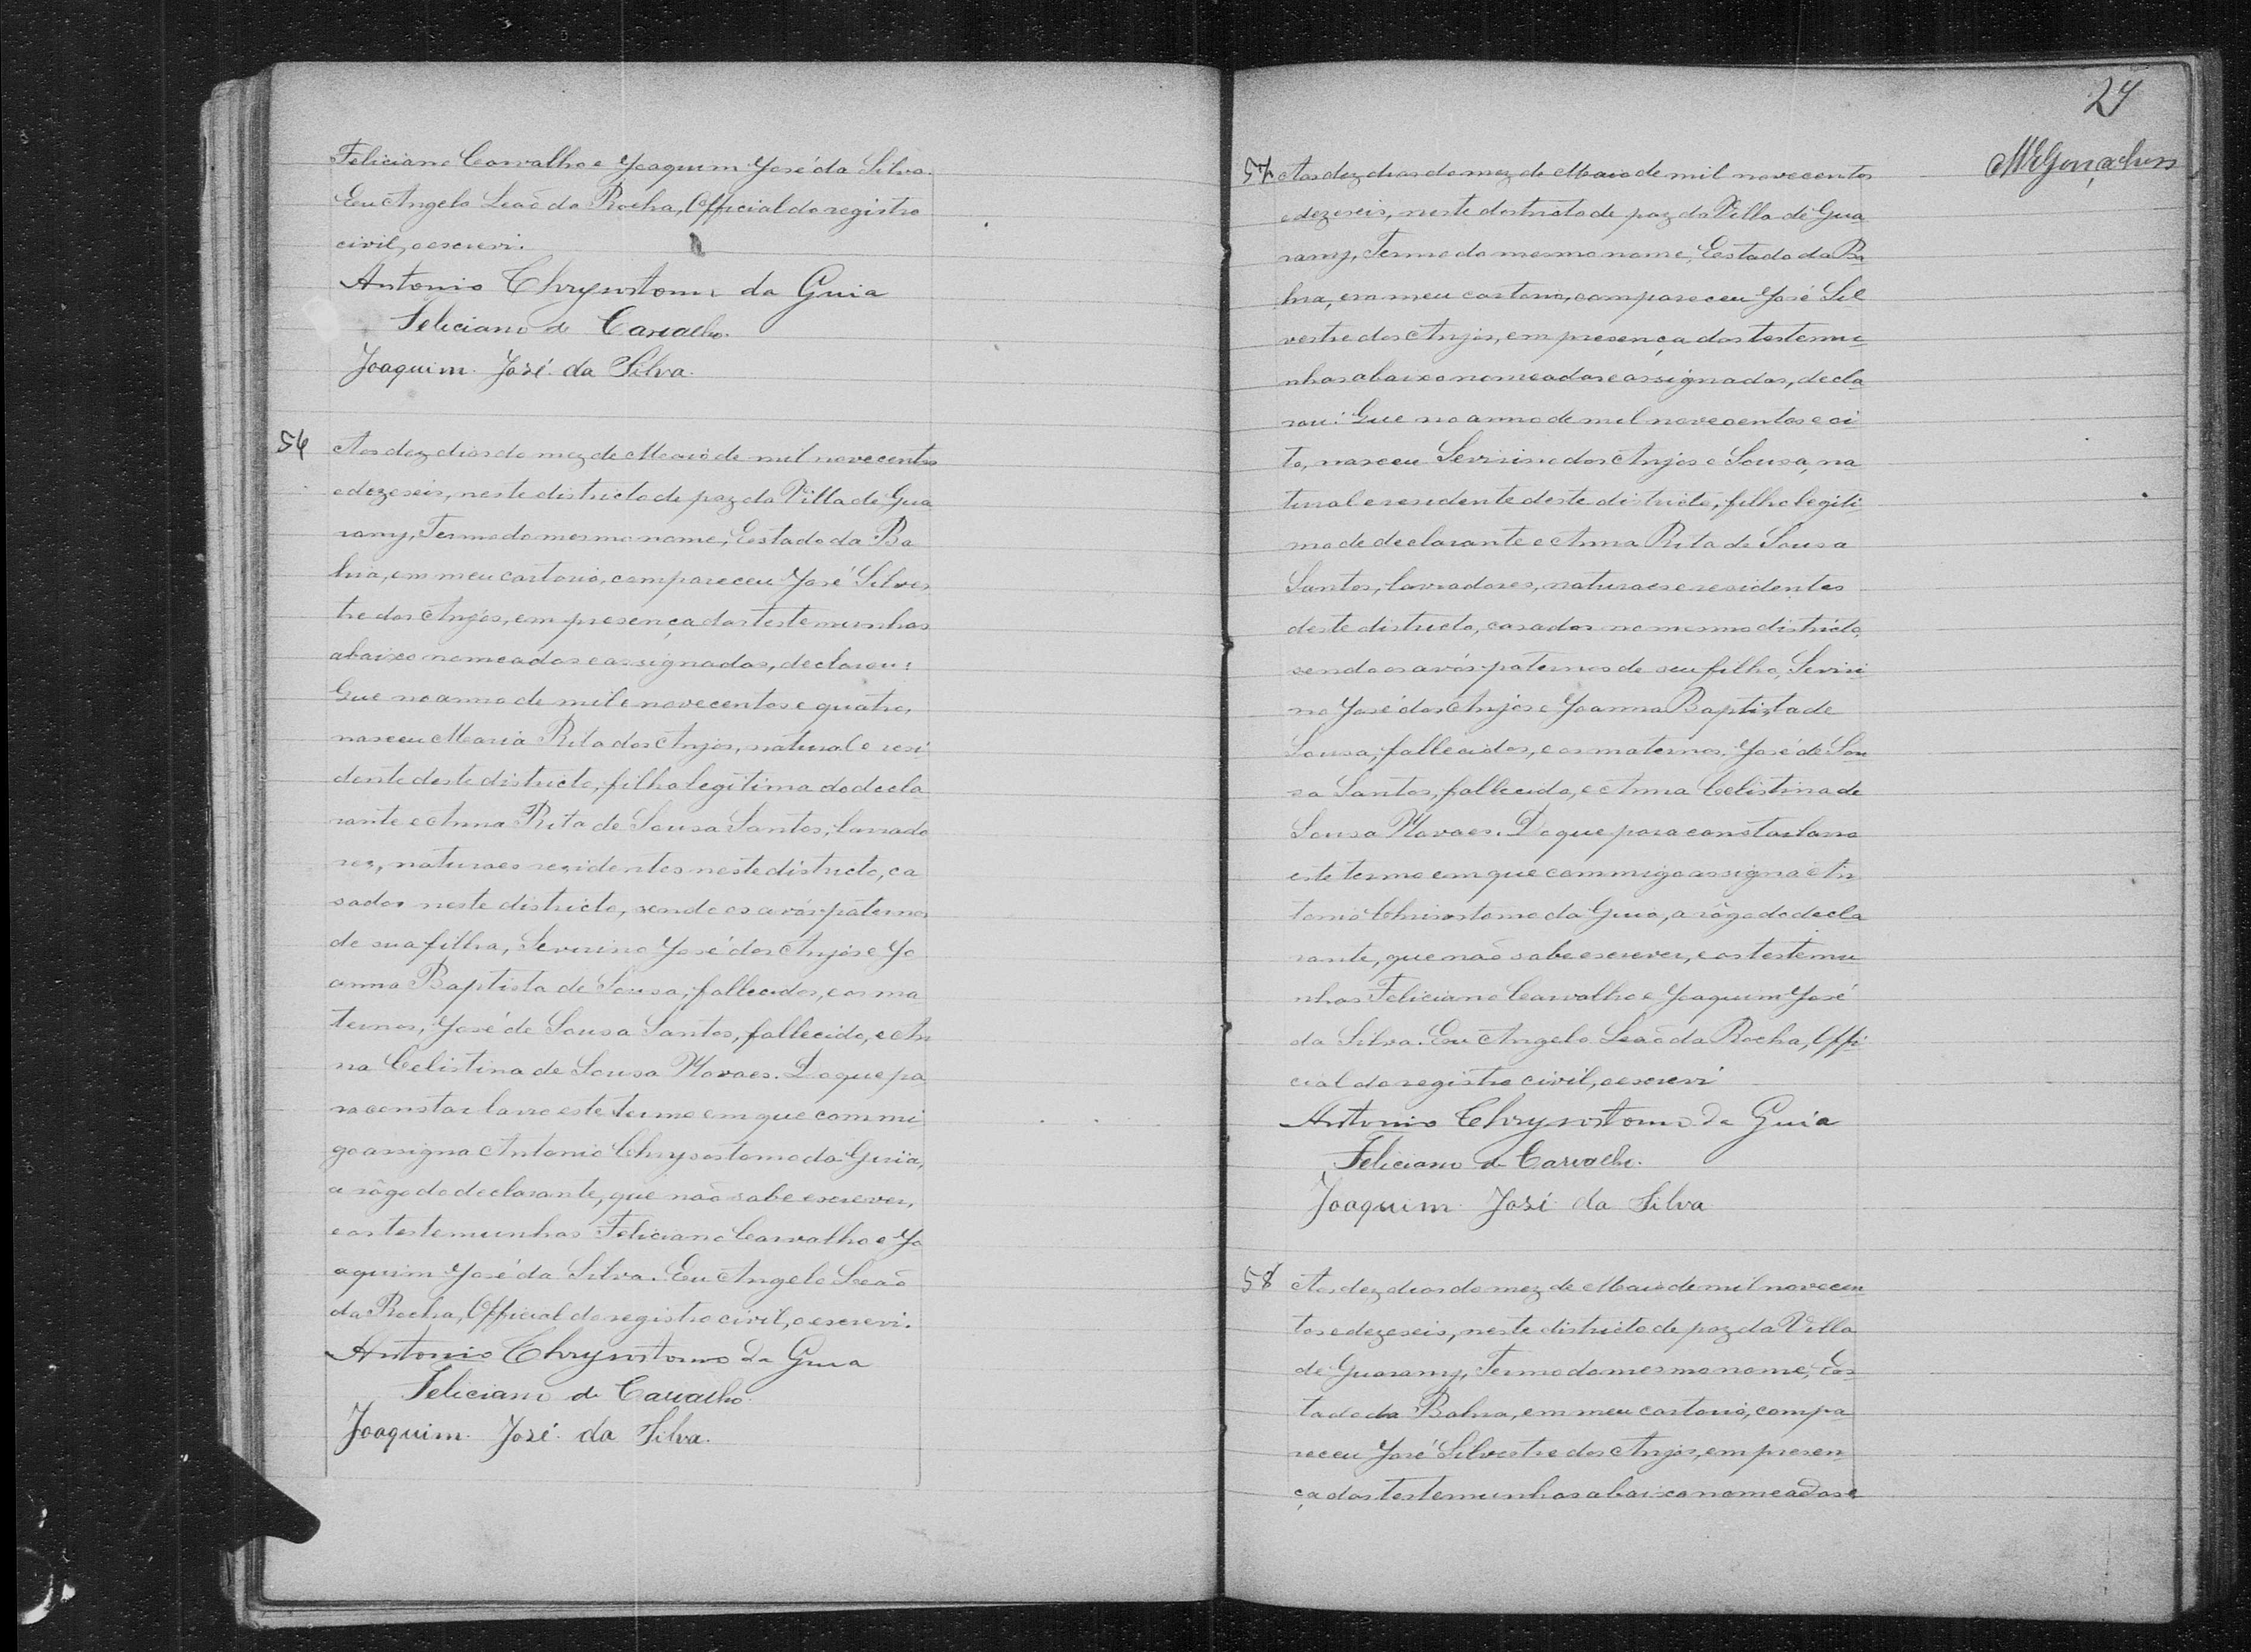 Feliciano Carvalho e Joaquim José da Silva.
Eu Angelo Leaõ da Rocha, Official do registro
civil, o escrevi.
Antonio Chrysostomo da Guia
Feliciano de Carvalho.
Joaquim José da Silva.
56 Aos dez dias do mez de Maio de mil novecentos
e dezeseis, neste districto de paz da Villa de Gua
rany, Termo do mesmo nome, Estado da Ba
hia, em meu cartorio, compareceu José Silves
tre dos Anjos, em presença das testemunhas
abaixo nomeadas e assignadas, declarou:
Que no anno de mil e novecentos e quatro,
nasceu Maria Rita dos Anjos, natural e resi
dente deste districto, filha legitima do decla
rante e Anna Rita de Sousa Santos, lavrado
res, naturaes residentes neste districto, ca
sados neste districto, sendo os avós paternos
de sua filha, Severino José dos Anjos e Jo
anna Baptista de Sousa, fallecidos, e os ma
ternos, José de Sousa Santos, fallecido, e An
na Celistina de Sousa Novaes. Do que pa
ra constar lavro este termo em que commi
go assigna Antonio Chrysostomo da Guia,
a rôgo do declarante, que não sabe escrever,
e as testemunhas Feliciano Carvalho e Jo
aquim José da Silva. Eu Angelo Leaõ
da Rocha, Official do registro civil, o escrevi.
Antonio Chrysostomo da Guia
Feliciano de Carvalho
Joaquim José da Silva.
27
57 Aos dez dias do mez de Maio de mil novecentos
e dezeseis, neste destricto de paz da Villa de Gua
rany, Termo do mesmo nome, Estado da Ba
hia, em meu cartorio, compareceu José Sil
vestre dos Anjos, em presença das testemu
nhas abaixo nomeadas e assignadas, decla
rou: Que no anno de mil novecentos e oi
to, nasceu Sevirino dos Anjos e Sousa, na
tural e residente deste districto, filho legiti
mo de declarante e Anna Rita de Sousa
Santos, lavradores, naturaes e residentes
deste districto, casados no mesmo districto,
sendo os avós paternos de seu filho, Seviri
no José dos Anjos e Joanna Baptista de
Sousa, fallecidos, e os maternos José de Sou
sa Santos, fallecido, e Anna Celistina de
Sousa Novaes. Do que para constar lavro
este termo em que commigo assigna An
tonio Chrisostomo da Guia, a rôgo do decla
rante, que não sabe escrever, e as testemu
nhas Feliciano Carvalho e Joaquim José
da Silva. Eu Angelo Leaõ da Rocha, Offi
cial do registro civil, o escrevi
Antonio Chrysostomo da Guia
Feliciano de Carvalho.
Joaquim José da Silva
58 Aos dez dias do mez de Maio de mil novecen
tos e dezeseis, neste districto de paz da Villa
de Guarany, Termo do mesmo nome, Es
tado da Bahia, em meu cartorio, compa
receu José Silvestre dos Anjos, em presen
ça das testemunhas abaixo nomeadas e